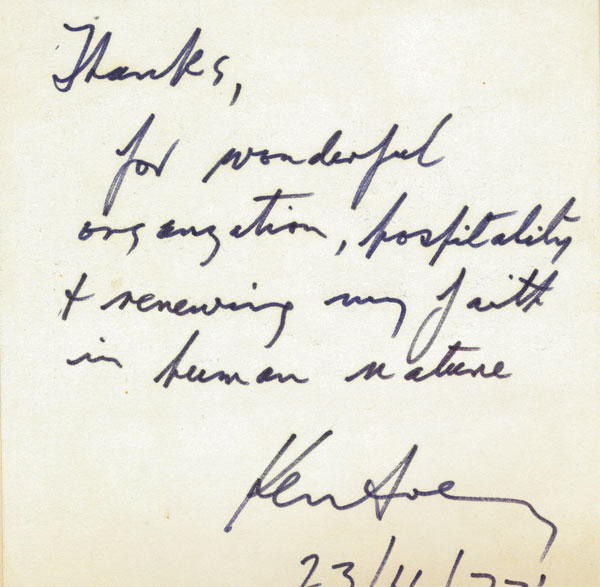 Thanks,
for wonderful
organzation, hospitality
+ renewing my faith
in human nature
Ken